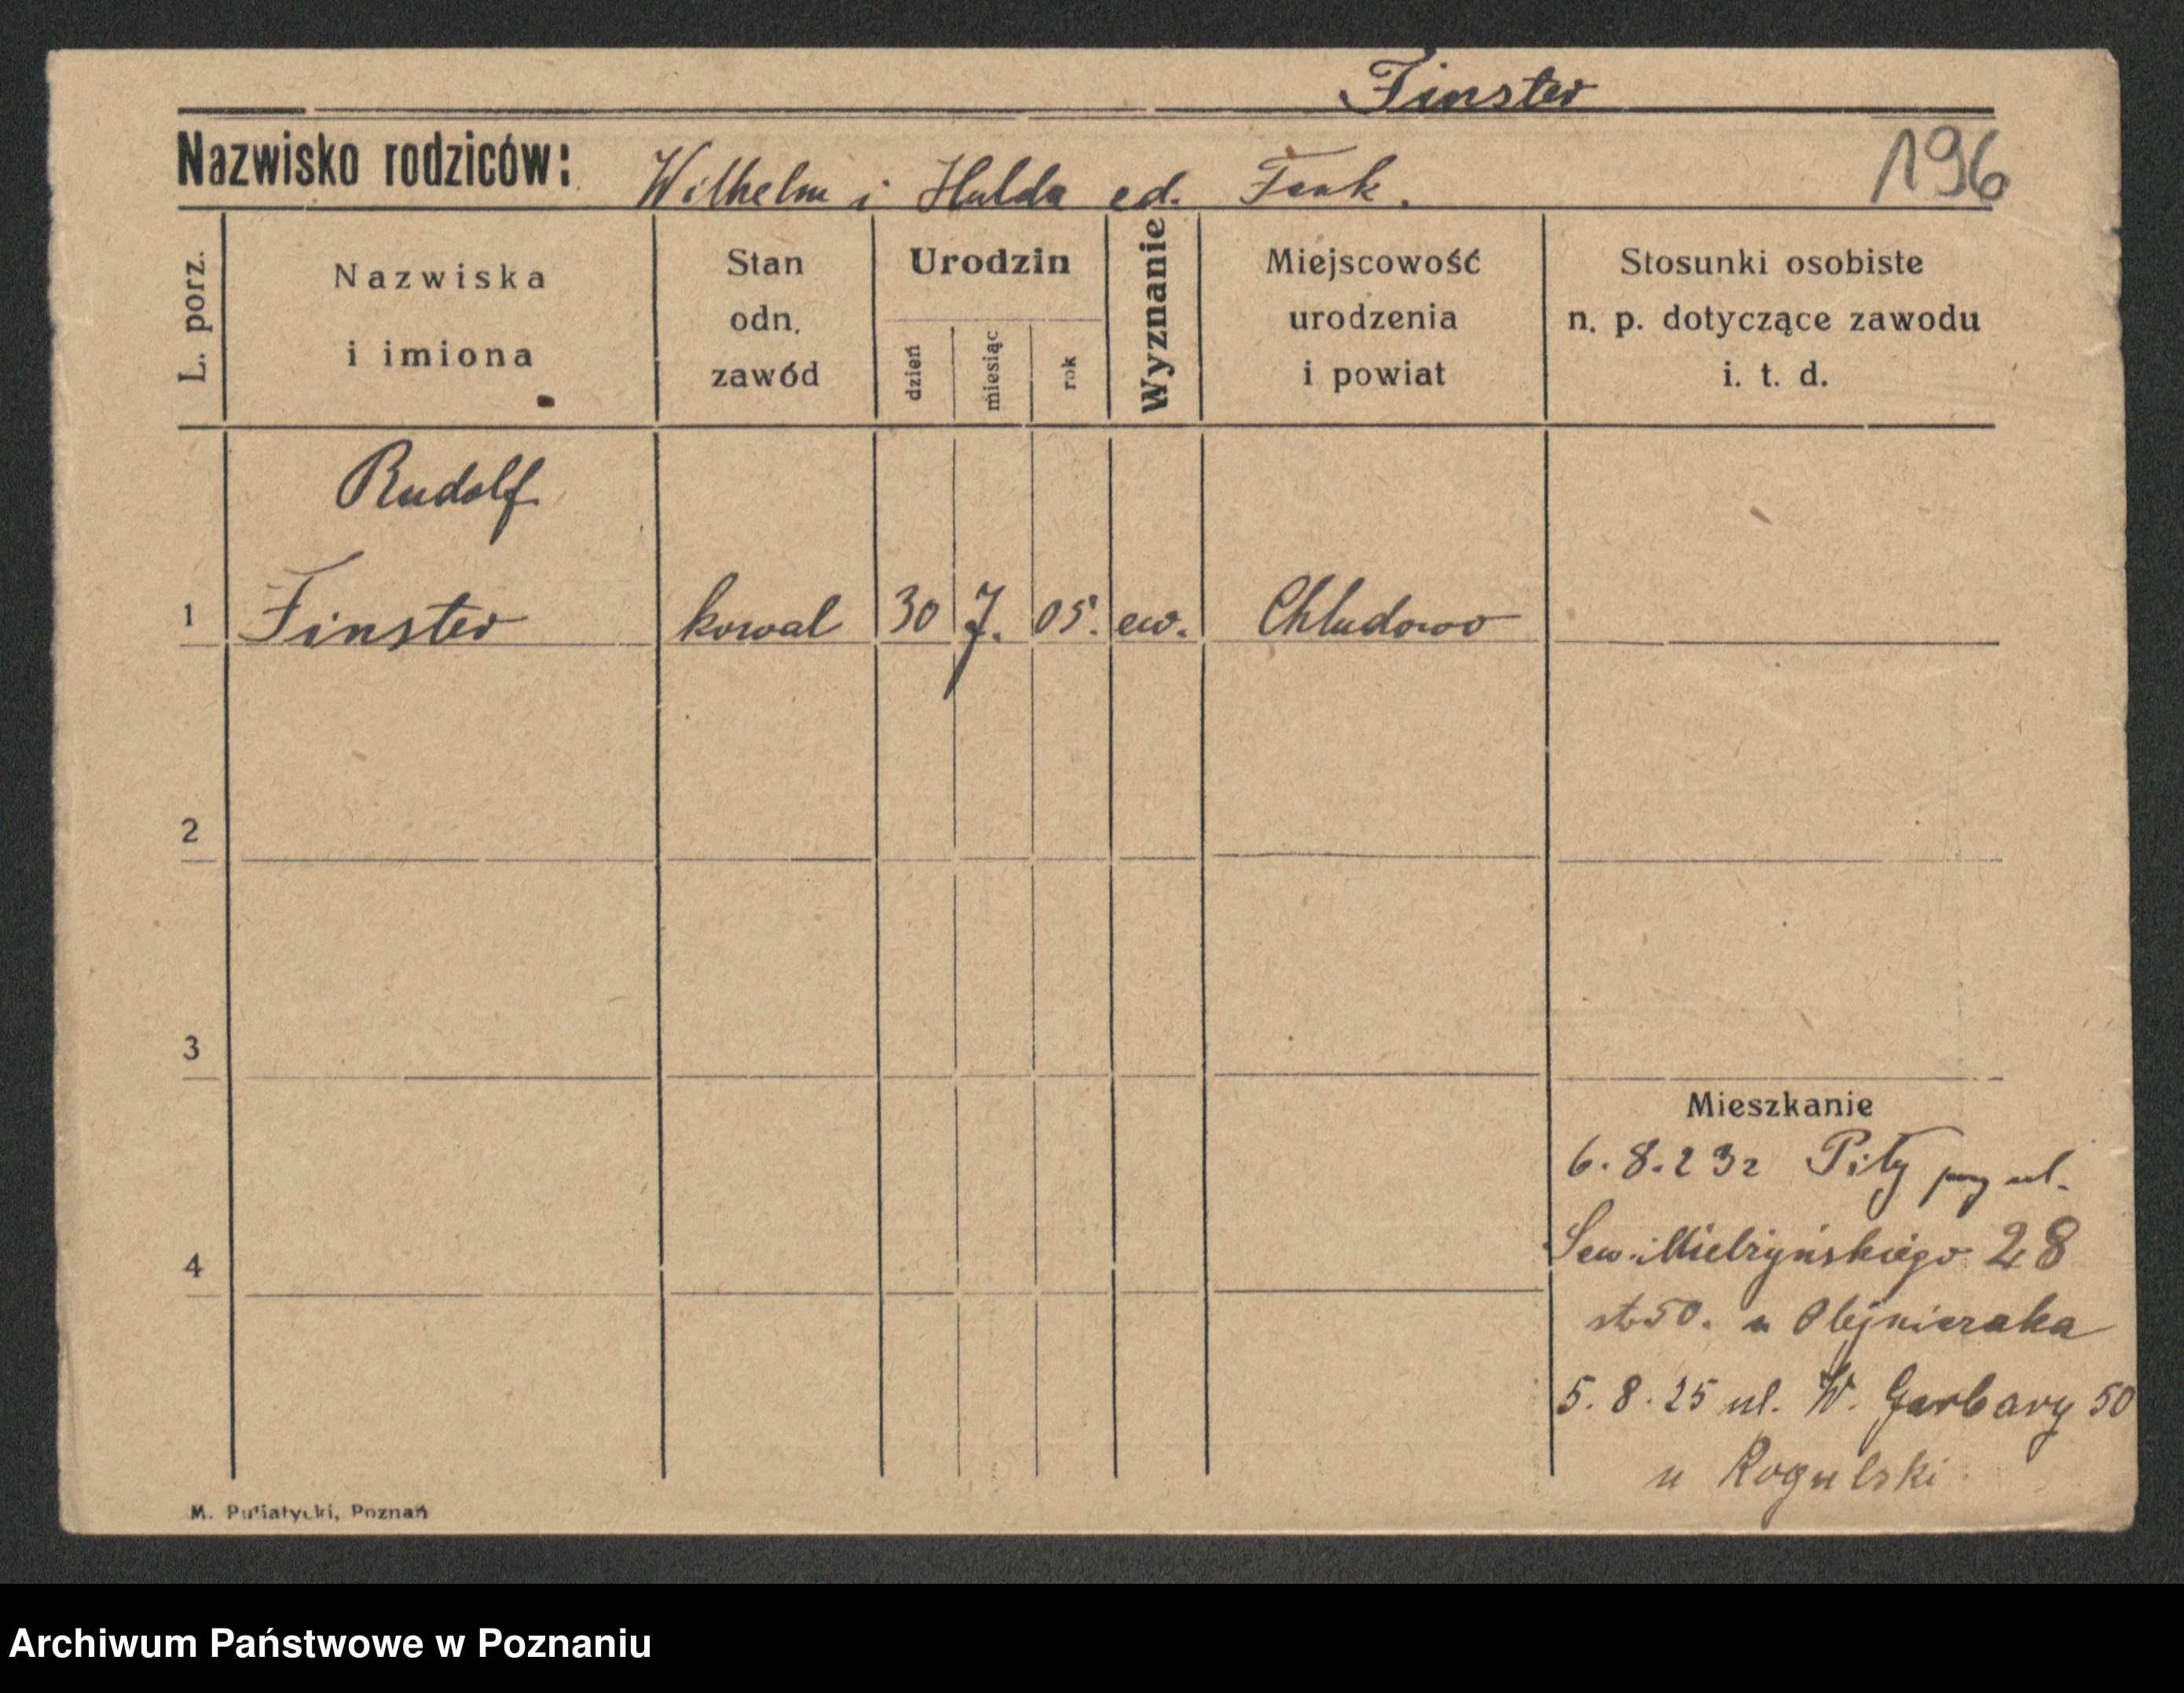 Finster
Nazwisko rodziców: Wilhelm i Hulda ed. Fenk. 196
L. porz.
Nazwiska
i imiona
Stan
odn.
zawód
Urodzin
dzień
miesiąc
rok
Wyznanie
Miejscowość
urodzenia
i powiat
Stosunki osobiste
n. p. dotyczące zawodu
i. t. d.
Rudolf
1 Finster kowal 30 7. 05. ew. Chludowo
2
3
Mieszkanie
6.8.23r Piły przy ul.
4
Sew. Mielżyńskiego 28
u Olejniczaka
5.8.25 ul. W. Garbary 50
u Rogulski
M. Putiatycki, Poznań
Archiwum Państwowe w Poznaniu